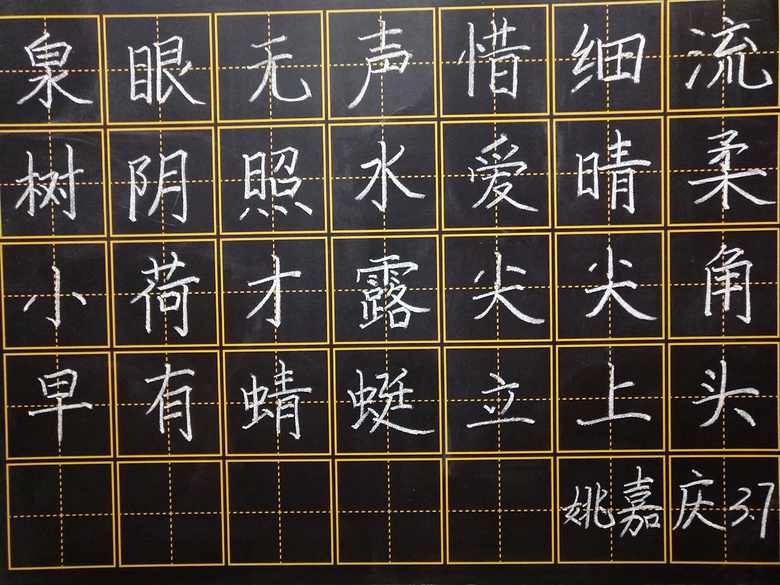 泉眼无声惜细流
树阴照水爱晴柔
小荷才露尖尖角
早有蜻蜓立上头
姚嘉庆3.7